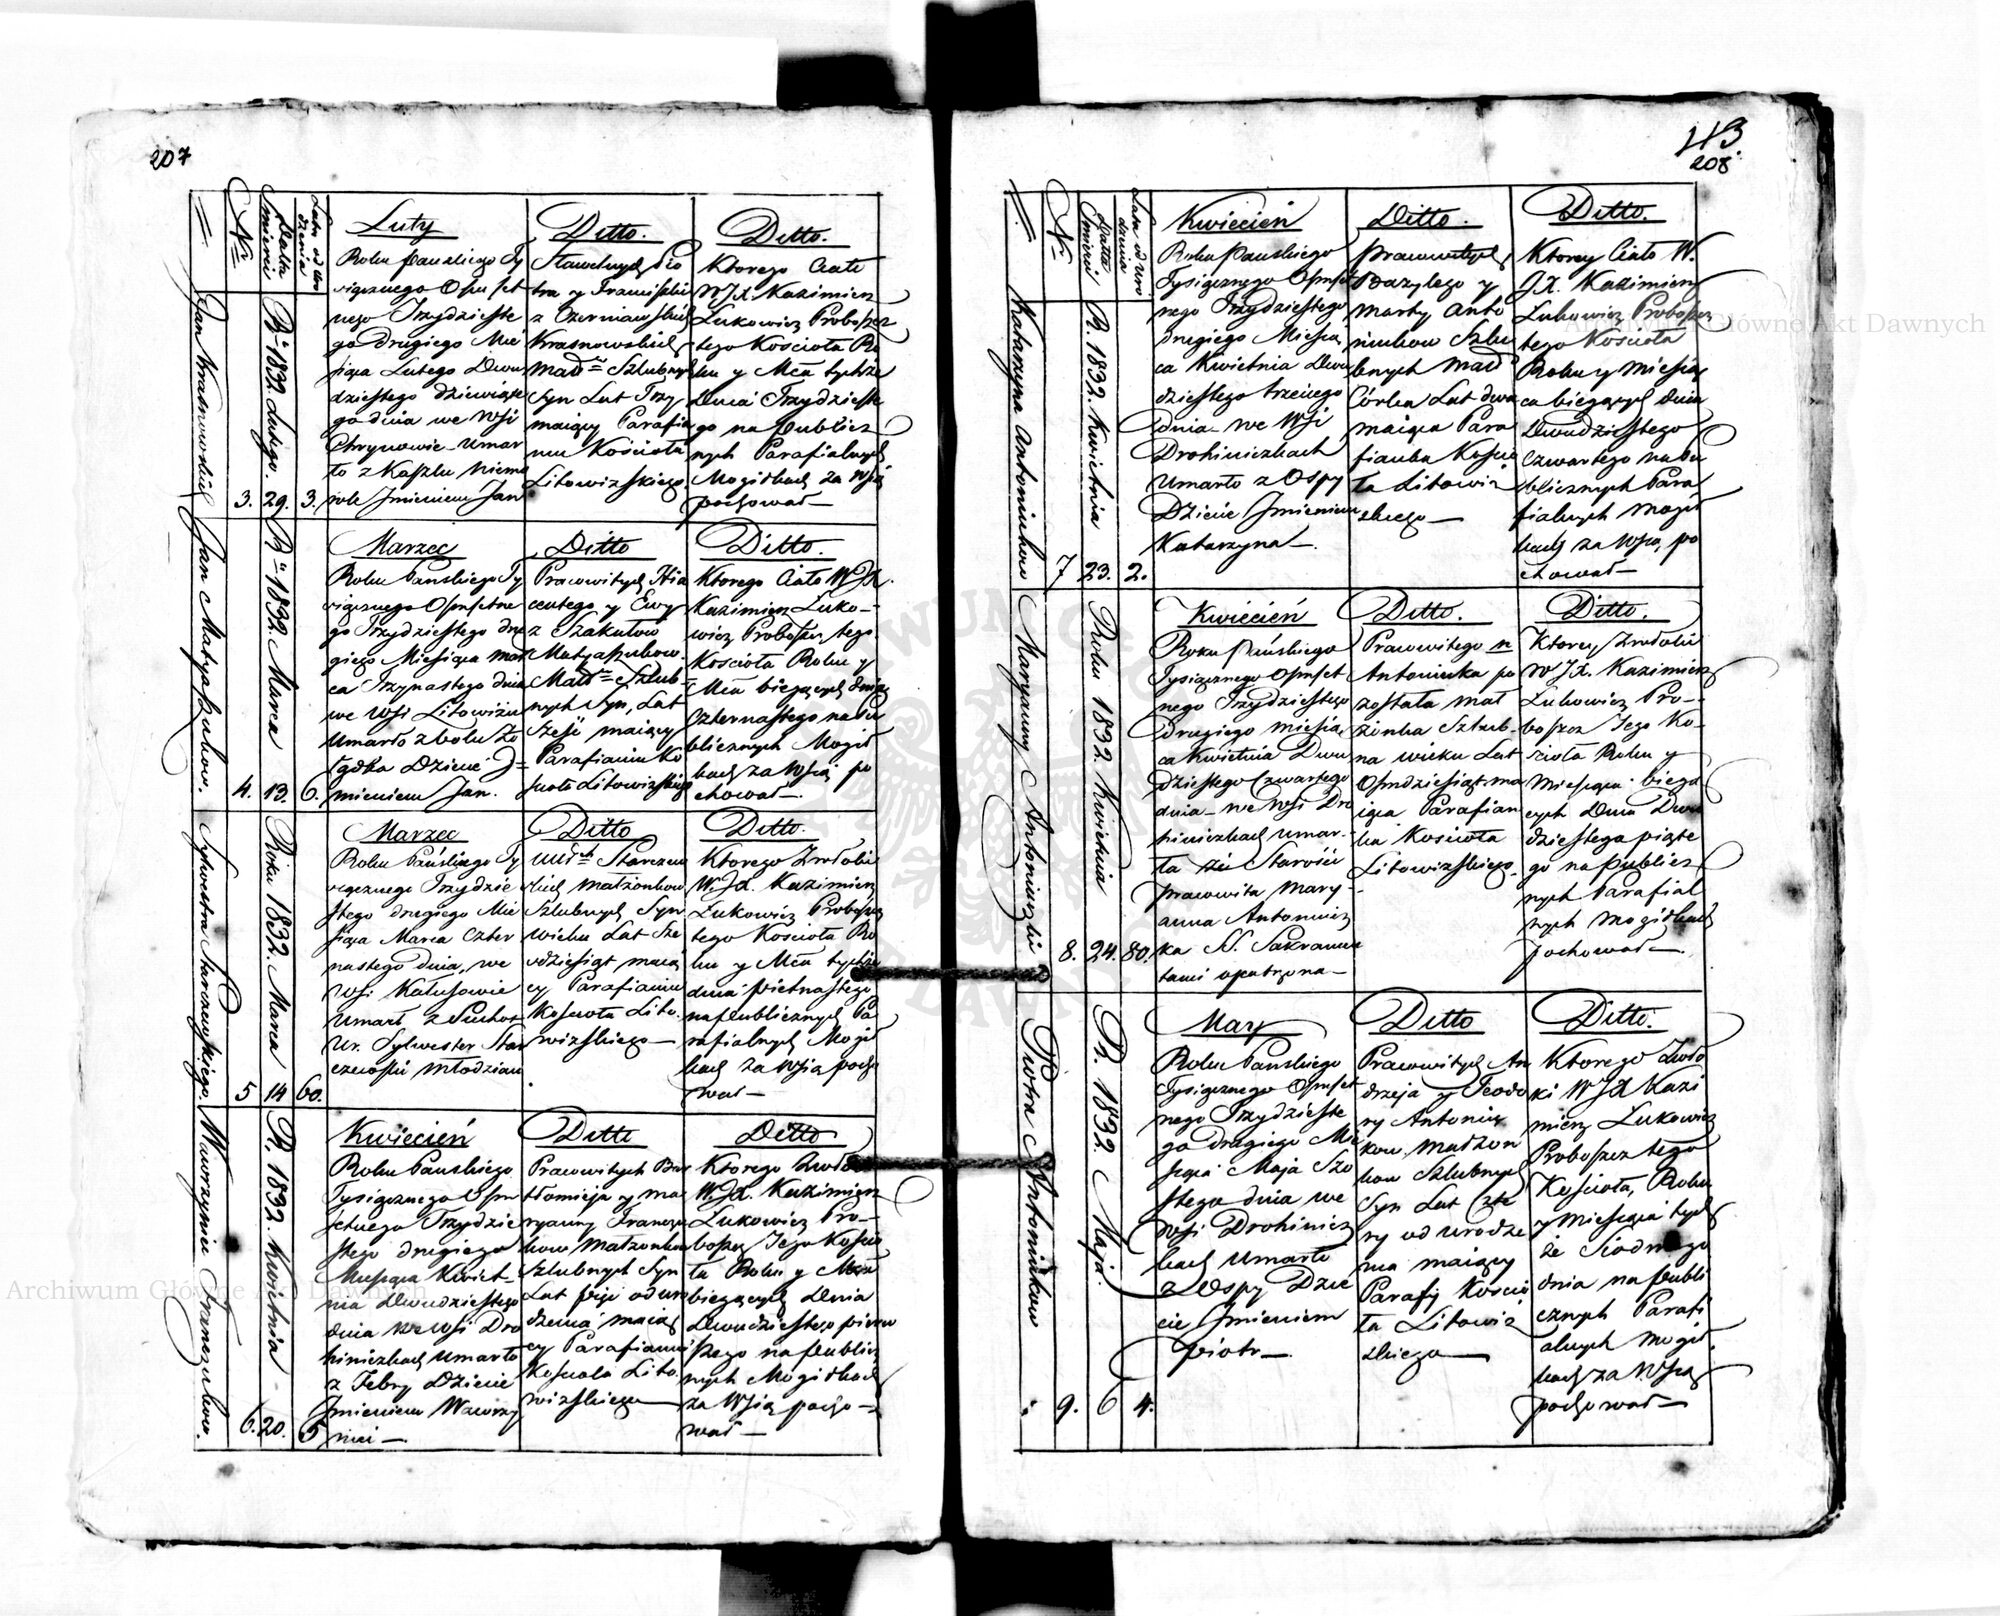 207
Nr
Datta Smierci
Lata od Uro dzenia
Jan Krasnowskich
3.
29.
R. 1832. Lutego.
3.
Luty
Roku Pańskiego Ty
siącznego Osmset
nego Trzydzieste
go drugiego Mie
siąca Lutego Dwu
dziestego dziewiąte
go dnia we Wsi
Chrynowie Umar
ło z Kaszlu
Jmieniem Jan
Ditto.
Sławetnych Pio
tra y Franciszki
z Czerniawskich
Krasnowskich
Mał Szlubnych
Syn Lat Trzy
maiący Parafia
nin Kościoła
Litowizskiego
Ditto.
Ktorego Ciało
W JX. Kazimierz
Łukowicz Probosz
tego Kościoła Ro
ku y Mca tychże
Dnia Trzydzieste
go na Publicz
nych Parafialnych
Mogiłkach za Wsią
pochował
Jan Matyaszukow.
4.
13.
R. 1832. Marca
6.
Marzec
Roku Pańskiego Ty
siącznego Osmsetne
go Trzydziestego dru
giego Miesiąca Mar
ca Trzynastego dnia
we Wsi Litowiżu
Umarło z bolu Żo
łądka Dziecie J=
mieniem Jan.
Ditto
Pracowitych Hia
centego y Ewy
z Szakułow
Matyaszukow.
Mał Szlub=
nych Syn, Lat
Sześć maiący
Parafianin Ko
ścioła Litowizskiego
Ditto.
Ktorego Ciało W JX.
Kazimierz Łuko-
wicz Probosz. tego
Kościoła Roku y
Mca bieżących dnia
Czternastego na Pu
blicznych Mogił
kach za Wsią po
chował.
Sylwestra Starczewskiego.
5
14
Roku 1832. Marca
60.
Marzec
Roku Pańskiego Ty
siącznego Trzydzie
stego drugiego Mie
siąca Marca Czter
nastego dnia, we
Wsi Kałusowie
Umarł z Suchot
Ur. Sylwester Star
czewski Młodzian
Ditto
Starczew
skich Małżonkow
Szlubnych Syn
Wieku Lat Sze
śćdziesiąt maią
cy Parafianin
Kościoła Lito.
wizskiego
Ditto.
Ktorego Zwłoki
W. JX. Kazimierz
Łukowicz Probosz
tego Kościoła Ro
ku y Mca tychże
dnia pietnastego
na Publicznych Pa
rafialnych Mogił
kach za Wsią poch
wał
Wawrzynia Franczukow.
6.
20.
R. 1832. Kwietnia
5
Kwiecień
Roku Pańskiego
Tysiącznego Osm
setnego Trzydzie
stego drugiego
Miesiąca Kwiet
nia Dwudziestego
dnia we Wsi Dro
hiniczkach Umarło
z Febry Dziecie
Jmieniem Wawrzy
niec
Ditto
Pracowitych Bar
tłomieja y Ma
ryanny Franczu
kow Małżonkow
Szlubnych Syn
Lat pięć od uro
dzenia maią
cy Parafianin
Kościoła Lito.
wizskiego
Ditto
Ktorego Zwłoki
W. JX. Kazimierz
Łukowicz Pro-
bosz Jego Kościo
ła Roku y Mca
bieżących Dnia
Dwudziestego pierw
szego na Publicz
nych Mogiłkach
za Wsią pocho-
wał
113.
208.
Nr
Datta Smierci
Lata od Uro dzenia
Katarzyna Antoniukowo
7
23.
R. 1832. Kwietnia
2.
Kwiecień
Roku Pańskiego
Tysiącznego Osmset
nego Trzydziestego
drugiego Miesią
ca Kwietnia Dwu
dziestego trzeciego
dnia we Wsi
Drohiniczkach
Umarło z Ospy
Dziecie Jmieniem
Katarzyna
Ditto.
Pracowitych
Bazylego y
Marty Anto
niukow Szlu
bnych Mał
Córka Lat dwa
maiąca Para
fianka Kościo
ła Litowiz
skiego
Ditto.
Ktorey Ciało W.
JX. Kazimierz
Łukowicz Probosz
tego Kościoła
Roku y Miesią
ca bieżących dnia
Dwudziestego
Czwartego na Pu
blicznych Para
fialnych Mogił
kach za Wsią po
chował
Maryanny Antoniuczki
8.
24.
Roku 1832. Kwietnia
80.
Kwiecień
Roku Pańskiego
Tysiącznego Osmset
nego Trzydziestego
drugiego Miesią
ca Kwietnia Dwu
dziestego Czwartego
dnia we Wsi Dro
hiniczkach Umar-
ła ze Starości
Pracowita Mary
anna Antoniucz
ka SS. Sakramen
tami opatrzona
Ditto.
Pracowitego
Antoniuka po
została Mał
żonka Szlub-
na wieku Lat
Osmdziesiąt ma
iąca Parafian
ka Kościoła
Litowizskiego.
Ditto.
Ktorey Zwłoki
W JX. Kazimierz
Łukowicz Pro-
bosz Jego Ko-
ścioła Roku y
Miesiąca bieżą
cych Dnia Dwu
dziestego piąte
go na publicz
nych Parafial
nych Mogiłkach
pochował
Piotra Antoniukow
9.
6
R. 1832. Maja
4.
May
Roku Pańskiego
Tysiącznego Osmset
nego Trzydzieste
go drugiego Mie
siąca Maja Szo
stego dnia we
Wsi Drohinicz
kach Umarło
z Ospy Dzie
cie Jmieniem
Piotr
Ditto
Pracowitych An
drzeja y Teodo
ry Antoniu
kow Małżon
kow Szlubnych
Syn Lat Czte
ry od urodze
nia maiący
Parafij Kościo
ła Litowiz
skiego
Ditto.
Ktorego Zwło
ki W JX Kazi
mierz Łukowicz
Probosz tego
Kościoła, Roku
y Miesiąca tych
że Siodmego
dnia na Publi
cznych Parafi
alnych Mogił
kach za Wsią
pochował
Archiwum Główne Akt Dawnych
Archiwum Główne Akt Dawnych